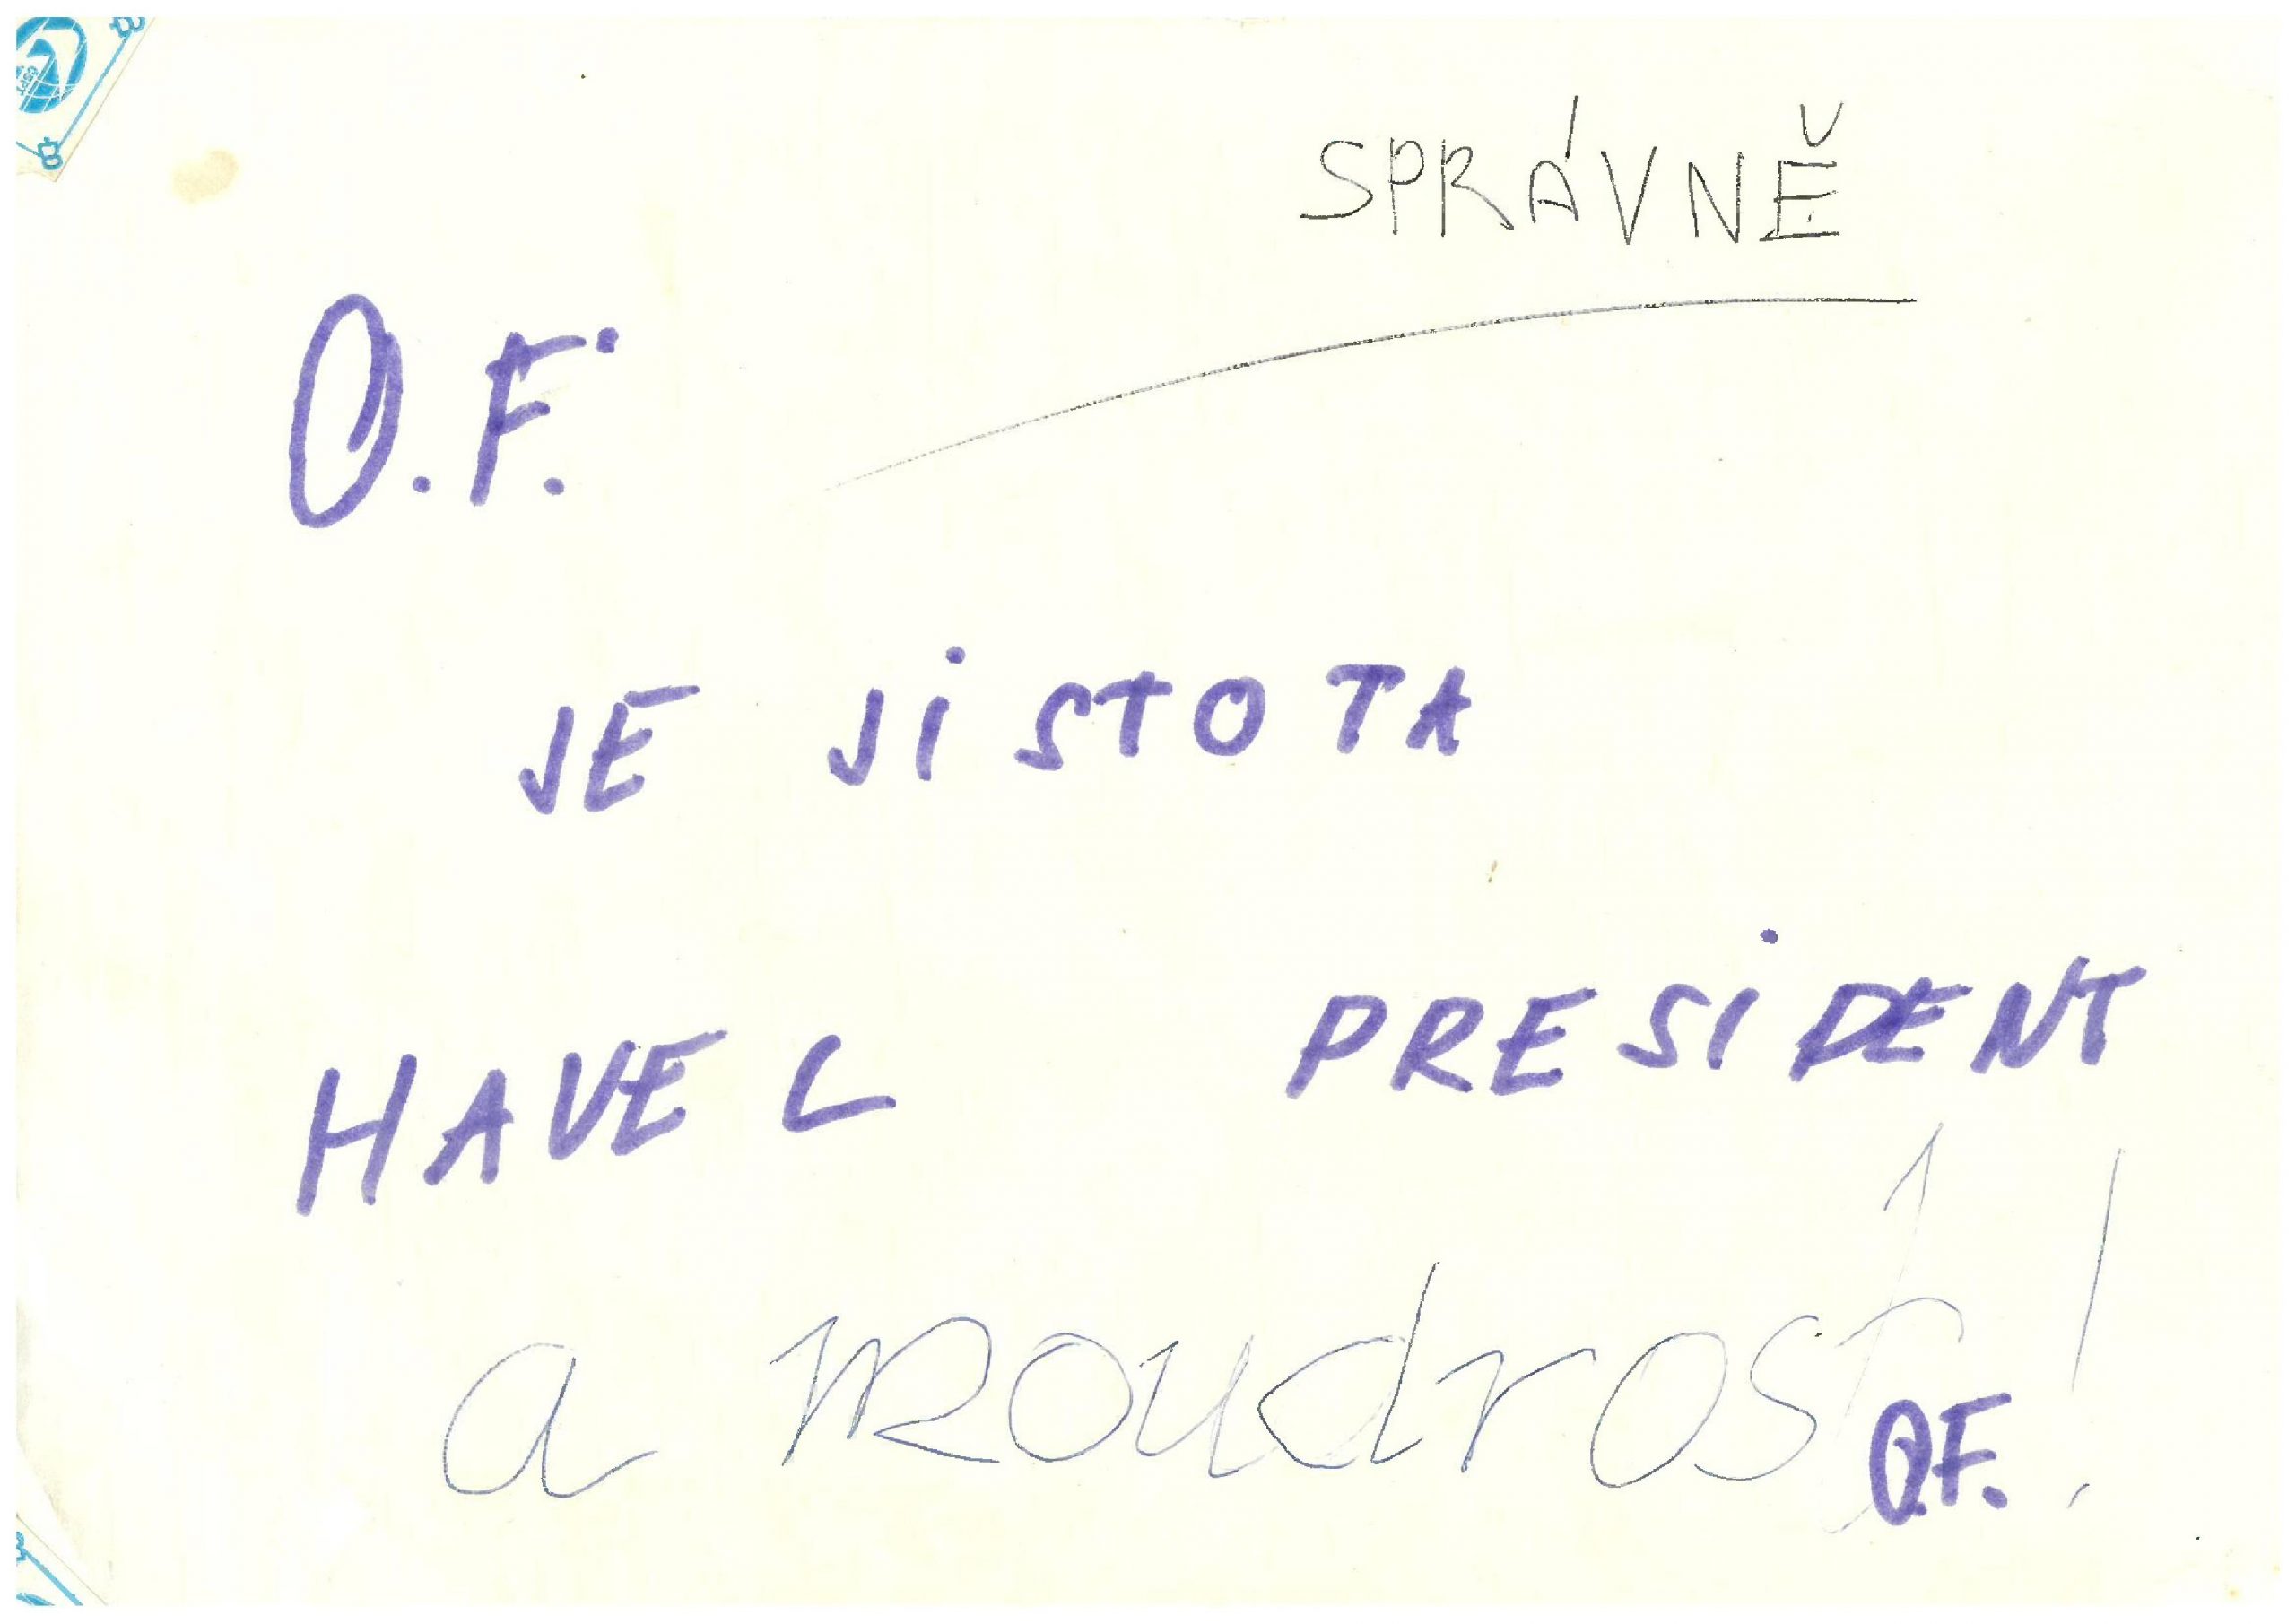 SPRÁVNĚ
O.F.
JE JISTOTA
HAVEL PRESIDENT
a moudrost!
O.F.